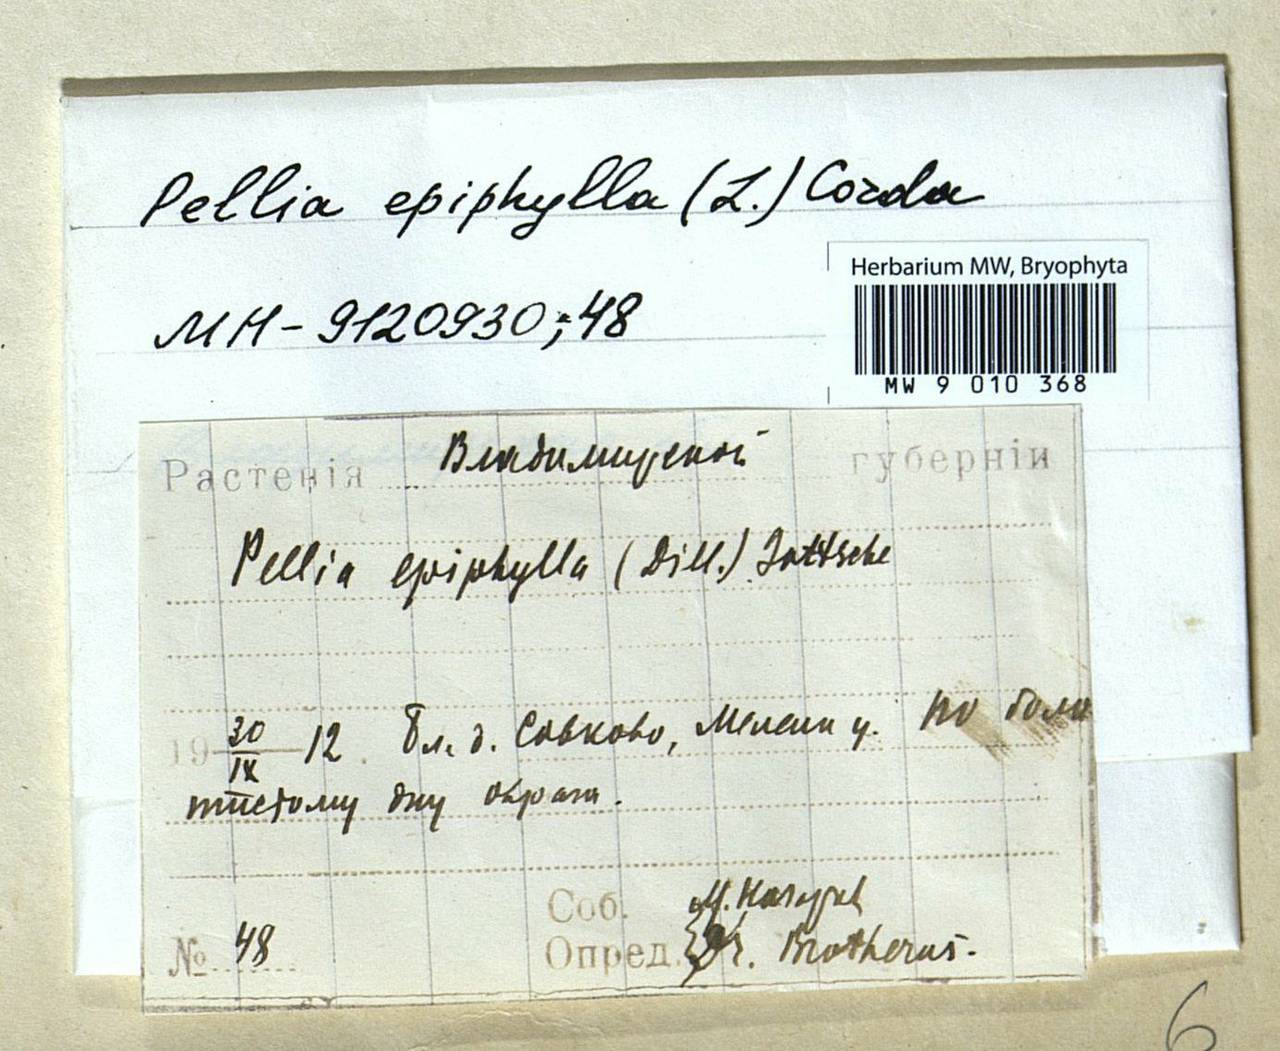 Pellia epiphylla (L.) Corda
Herbarium MW, Bryophyta
МН-9120930; 48
MW 9 010 368
Растенія Владимирской губерніи
Pellia epiphylla (Dill.) Gottsche
19 30/IX 12. Бл. д. Савково, Меленк. у. по боло
тистому дну оврага.
Соб. М. Назаров
№ 48
Опред. Dr. Brotherus.
6